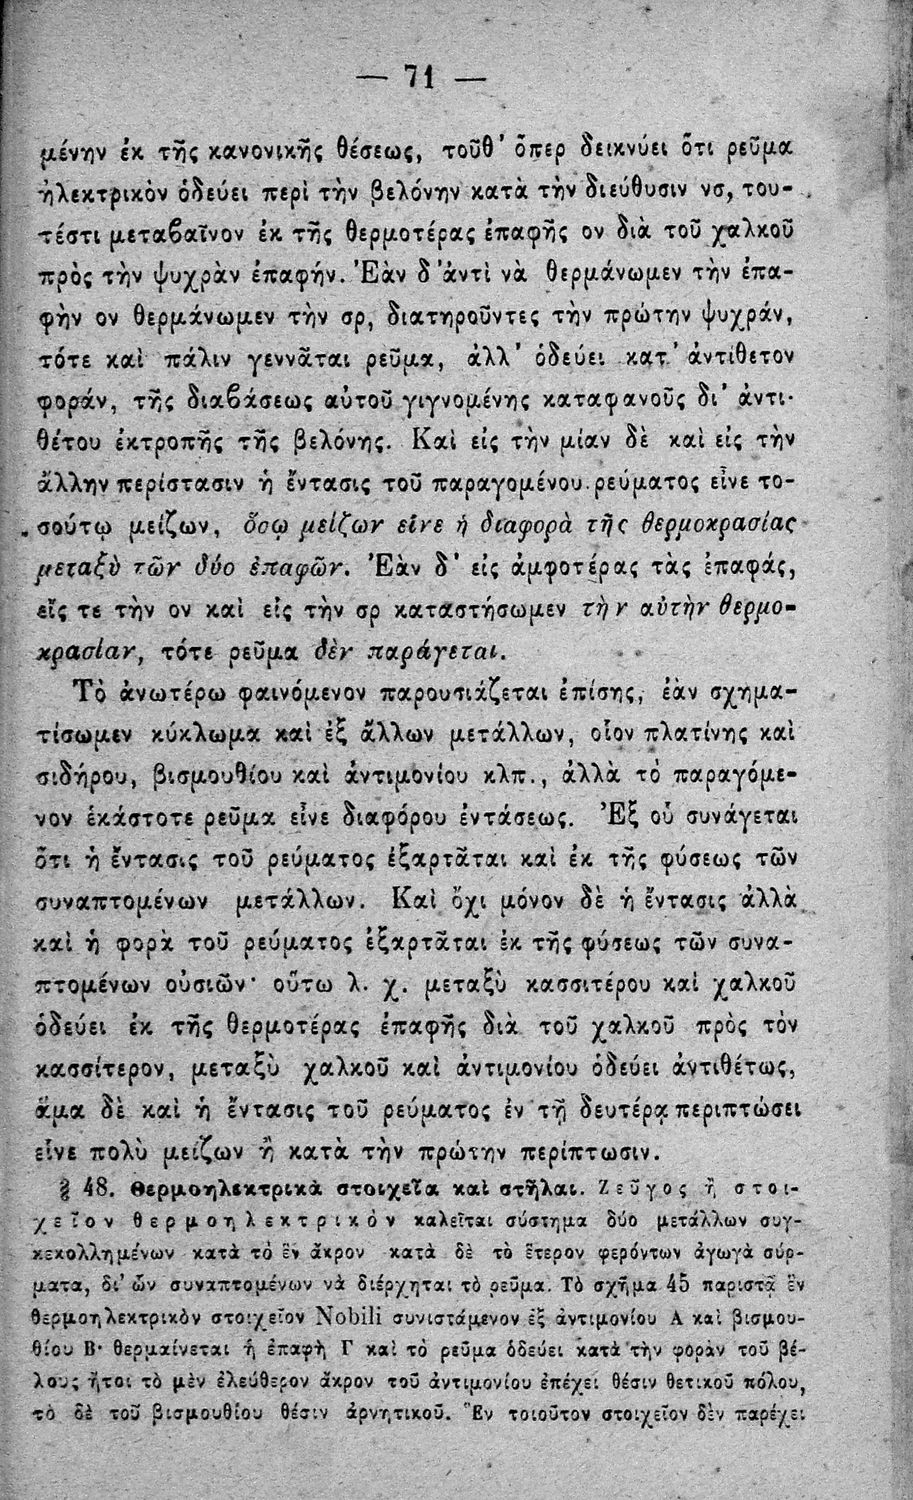 — 71 —
μένην ἐκ τῆς κανονικῆς θέσεως, τοῦθ’ ὅπερ δεικνύει ὅτι ρεῦμα
ἠλεκτρικὸν ὁδεύει περὶ τὴν βελόνην κατὰ τὴν διεύθυσιν νσ, του-
τέστι μεταβαῖνον ἐκ τῆς θερμοτέρας ἐπαφῆς ον διὰ τοῦ χαλκοῦ
πρὸς τὴν ψυχρὰν ἐπαφήν. Ἐὰν δ’ ἀντὶ νὰ θερμάνωμεν τὴν ἐπα-
φὴν ον θερμάνωμεν τὴν σρ, διατηροῦντες τὴν πρώτην ψυχράν,
τότε καὶ πάλιν γεννᾶται ρεῦμα, ἀλλ’ ὁδεύει κατ’ ἀντίθετον
φοράν, τῆς διαβάσεως αὐτοῦ γιγνομένης καταφανοῦς δι’ ἀντι-
θέτου ἐκτροπῆς τῆς βελόνης. Καὶ εἰς τὴν μίαν δὲ καὶ εἰς τὴν
ἄλλην περίστασιν ἡ ἔντασις τοῦ παραγομένου ρεύματος εἶνε το-
σούτῳ μείζων, ὅσῳ μείζων εἶνε ἡ διαφορὰ τῆς θερμοκρασίας
μεταξὺ τῶν δύο ἐπαφῶν. Ἐὰν δ’ εἰς ἀμφοτέρας τὰς ἐπαφάς,
εἴς τε τὴν ον καὶ εἰς τὴν σρ καταστήσωμεν τὴν αὐτὴν θερμο-
κρασίαν, τότε ρεῦμα δὲν παράγεται.
Τὸ ἀνωτέρω φαινόμενον παρουσιάζεται ἐπίσης, ἐὰν σχημα-
τίσωμεν κύκλωμα καὶ ἐξ ἄλλων μετάλλων, οἷον πλατίνης καὶ
σιδήρου, βισμουθίου καὶ ἀντιμονίου κλπ., ἀλλὰ τὸ παραγόμε-
νον ἑκάστοτε ρεῦμα εἶνε διαφόρου ἐντάσεως. Ἐξ οὗ συνάγεται
ὅτι ἡ ἔντασις τοῦ ρεύματος ἐξαρτᾶται καὶ ἐκ τῆς φύσεως τῶν
συναπτομένων μετάλλων. Καὶ ὄχι μόνον δὲ ἡ ἔντασις ἀλλὰ
καὶ ἡ φορὰ τοῦ ρεύματος ἐξαρτᾶται ἐκ τῆς φύσεως τῶν συνα-
πτομένων οὐσιῶν· οὕτω λ. χ. μεταξὺ κασσιτέρου καὶ χαλκοῦ
ὁδεύει ἐκ τῆς θερμοτέρας ἐπαφῆς διὰ τοῦ χαλκοῦ πρὸς τὸν
κασσίτερον, μεταξὺ χαλκοῦ καὶ ἀντιμονίου ὁδεύει ἀντιθέτως,
ἅμα δὲ καὶ ἡ ἔντασις τοῦ ρεύματος ἐν τῇ δευτέρᾳ περιπτώσει
εἶνε πολὺ μείζων ἢ κατὰ τὴν πρώτην περίπτωσιν.
§ 48. Θερμοηλεκτρικὰ στοιχεῖα καὶ στῆλαι. Ζεῦγος ἢ στοι-
χεῖον θερμοηλεκτρικὸν καλεῖται σύστημα δύο μετάλλων συγ-
κεκολλημένων κατὰ τὸ ἓν ἄκρον κατὰ δὲ τὸ ἕτερον φερόντων ἀγωγὰ σύρ-
ματα, δι’ ὧν συναπτομένων νὰ διέρχηται τὸ ρεῦμα. Τὸ σχῆμα 45 παριστᾷ ἓν
θερμοηλεκτρικὸν στοιχεῖον Nobili συνιστάμενον ἐξ ἀντιμονίου Α καὶ βισμου-
θίου Β· θερμαίνεται ἡ ἐπαφὴ Γ καὶ τὸ ρεῦμα ὁδεύει κατὰ τὴν φορὰν τοῦ βέ-
λους ἤτοι τὸ μὲν ἐλεύθερον ἄκρον τοῦ ἀντιμονίου ἐπέχει θέσιν θετικοῦ πόλου,
τὸ δὲ τοῦ βισμουθίου θέσιν ἀρνητικοῦ. Ἓν τοιοῦτον στοιχεῖον δὲν παρέχει